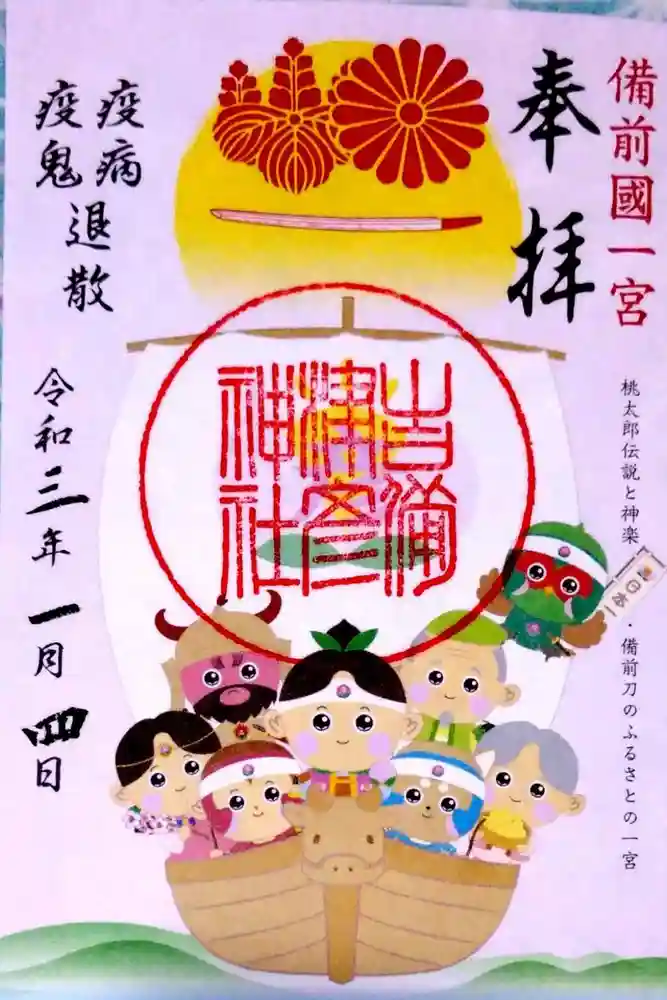 備前國一宮
奉拝
桃太郎伝説と神楽・備前刀のふるさとの一宮
吉備
津彦
神社
日本一
疫病
疫鬼
退散
令和三年一月四日